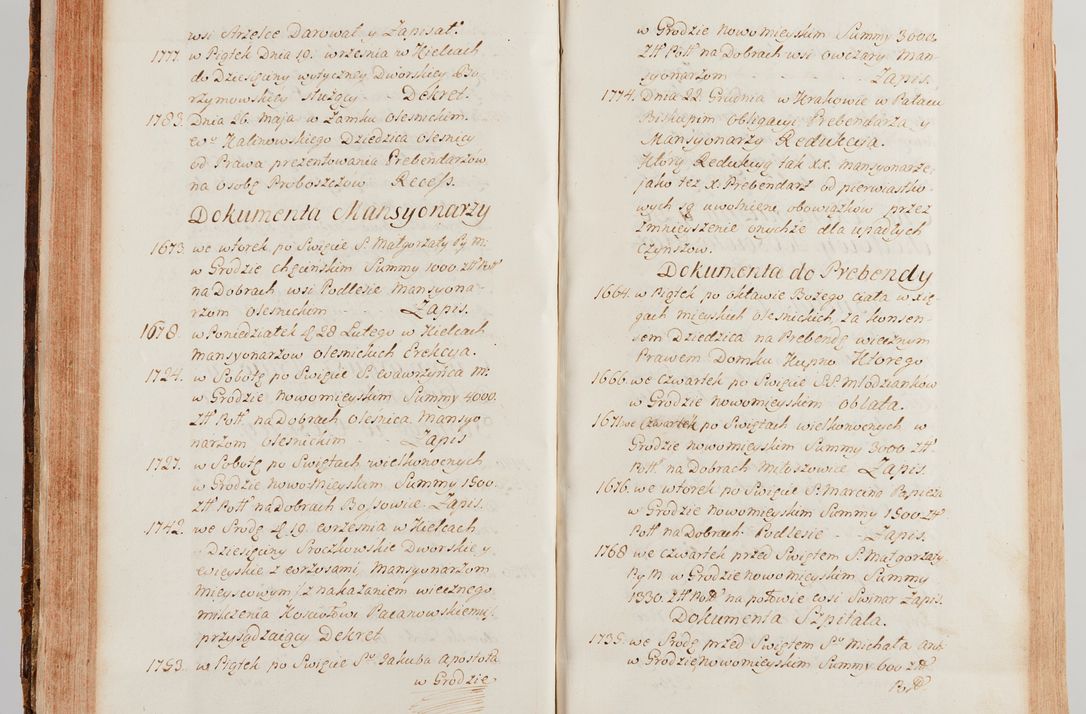 wsi Strzelce Darował y Zapisał.
1777. w Piątek Dnia 19. września w Kielcach
do Dziesięciny wytyczney Dworskiey
rzymowskiey służący - - Dekret.
1783. Dnia 26. Maja w Zamku Olesnickim.
Kalinowskiego Dziedzica Olesnicy
od Prawa prezentowania Prebendarzów
na osobę Proboszczów Recess.
Dokumenta Mansyonarzy
1673. we wtorek po Swięcie S. Małgorzaty P. y M:
w Grodzie chęcińskim Summy 1000. Złł Poll
na Dobrach wsi Podlesie Mansyona-
rzom olesnickim - - Zapis.
1678. w Poniedziałek d. 28 Lutego w Kielcach
Mansyonarzow olesnickich Erekcya.
1724. w Sobotę po Swięcie S. Wawrzyńca M:
w Grodzie nowomieyskim Summy 4000.
Złł Poll na Dobrach Oleśnica Mansyo-
narzom olesnickim - - Zapis
1727. w Sobotę po Swiętach wielkonocnych
w Grodzie nowo Mieyskim Summy 1500.
Złł Poll na Dobrach Bossowie Zapis.
1742. we Srodę d. 19. września w Kielcach
Dziesięciny Proczkowskie Dworskie y
wieyskie z Mansyonarzom
Mieyscowym / z nakazaniem wiecznego
milczenia Kosciołowi Pacanowskiemu /
przysądzaiący Dekret
1753. w Piątek po Swięcie S. Jakuba Apostoła
w Grodzie
w Grodzie nowomieyskim Summy 3000.
Złł Poll na Dobrach wsi owczary Man-
syonarzom - - Zapis.
1774. Dnia 22. Grudnia w Krakowie w Pałacu
Biskupim obligacyi Prebendarza y
Mansyonarzy Redukcya.
Ktory Redukcyą tak XX. Mansyonarze,
jako też X. Prebendarz od pierwiastko-
wych są uwolnieni obowiązkow przez
zmnieyszenie onychże dla upadłych
czynszow.
Dokumenta do Prebendy
1664. w Piątek po oktawie Bożego ciała w xię-
gach mieyskich olesnickich za konsen-
sem Dziedzica na Prebendę wiecznym
Prawem Domku Kupno Ktorego
1666. we czwartek po Swięcie S.S. Młodzianków
w Grodzie nowomieyskim oblata.
1671. we czwartek po Swiętach wielkonocnych w
Grodzie nowomieyskim Summy 3000 Złł
Poll na Dobrach Mikoszowie Zapis.
1676. we wtorek po Swięcie S. Marcina Papieża
w Grodzie nowomieyskim Summy 1500. Złł
Poll na Dobrach Podlesie - - Zapis.
1768 we czwartek przed Swiętem S. Małgorzaty
P. y M w Grodzie nowo mieyskim Summy
1330. Złł Poll na połowie wsi Swiniar Zapis.
Dokumenta Szpitala.
1735. we Srodę przed Swiętem S. Michała
w Grodzie nowomieyskim Summy 600 Złł
Poll